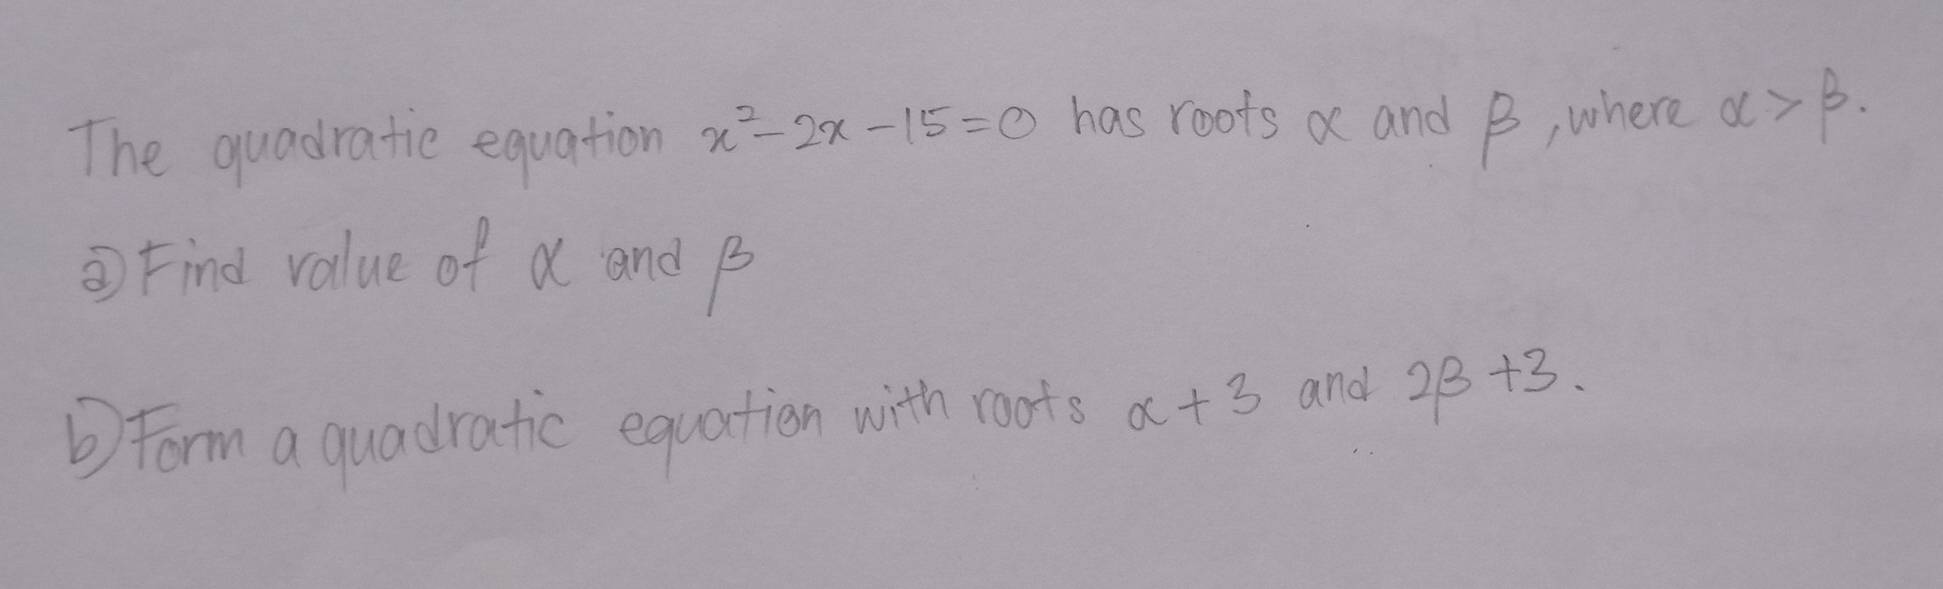 The quadratic equation x²-2x-15=0 has roots α and β, where α>β.
a) Find value of α and β
b) Form a quadratic equation with roots α+3 and 2β+3.